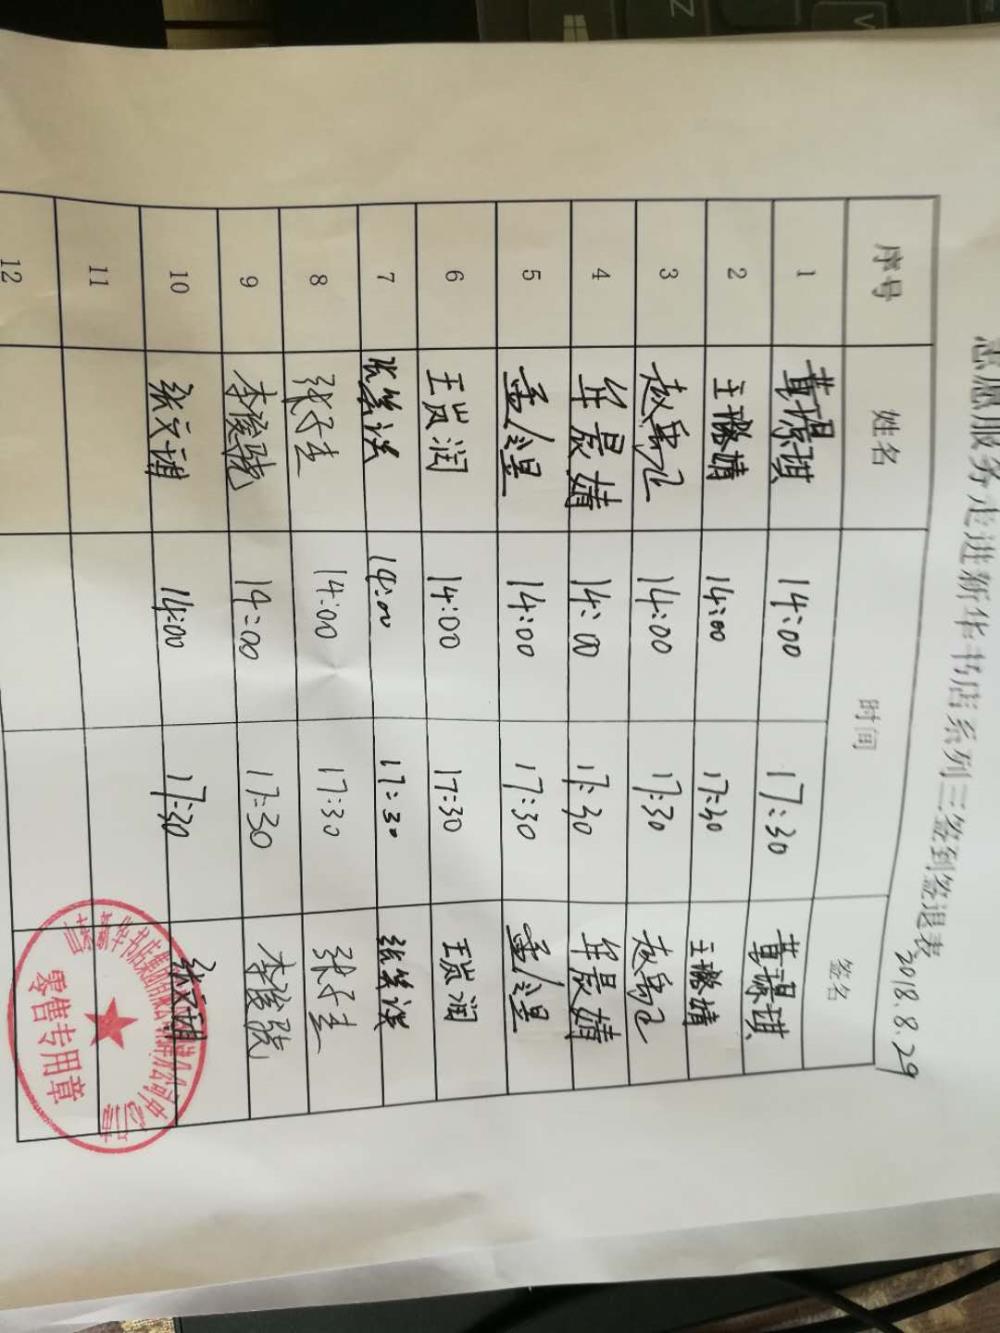 志愿服务走进新华书店系列三签到签退表
2018.8.29
序号 姓名 时间 签名
1 黄璟琪 14:00 17:30 黄璟琪
2 王璐婧 14:00 17:30 王璐婧
3 赵禹 14:00 17:30 赵禹
4 年晨婧 14:00 17:30 年晨婧
5 孟令星 14:00 17:30 孟令星
6 王岚润 14:00 17:30 王岚润
7 张 14:00 17:30 张
8 张子圭 14:00 17:30 张子圭
9 李俊骁 14:00 17:30 李俊骁
10 张文翊 14:00 17:30 张文翊
11
12
零售专用章